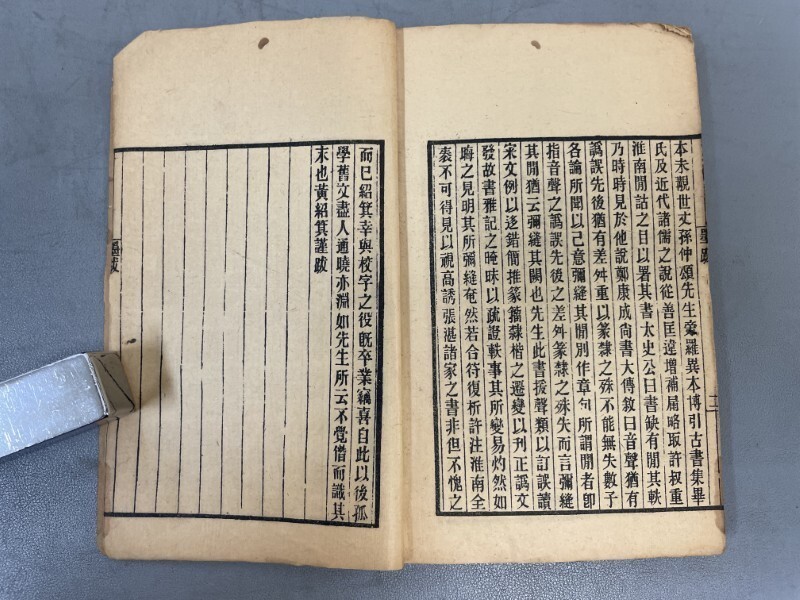 本未觀世丈孫仲頌先生旁羅異本博引古書集畢
氏及近代諸儒之說從善匡違增補扇略取許叔重
淮南閒詁之目以署其書太史公曰書缺有閒其軼
乃時時見於他說鄭康成尚書大傳敘曰音聲猶有
譌誤先後猶有差舛重以篆隸之殊不能無失數子
各論所聞以己意彌縫其閒別作章句所謂閒者卽
指音聲之譌誤先後之差舛篆隸之殊失而言彌縫
其閒猶云彌縫其闕也先生此書援聲類以訂誤讀
宋文例以迻錯簡推篆籀隸楷之遷變以刊正譌文
發故書雅記之晻昧以疏證軼事其所變易灼然如
晦之見明其所彌縫奄然若合符復析許注淮南全
袠不可得見以視高誘張湛諸家之書非但不愧之
墨跋
十二
而已紹箕幸與校字之役旣卒業竊喜自此以後孤
學舊文盡人通曉亦淵如先生所云不覺僭而識其
末也黃紹箕謹跋
墨跋